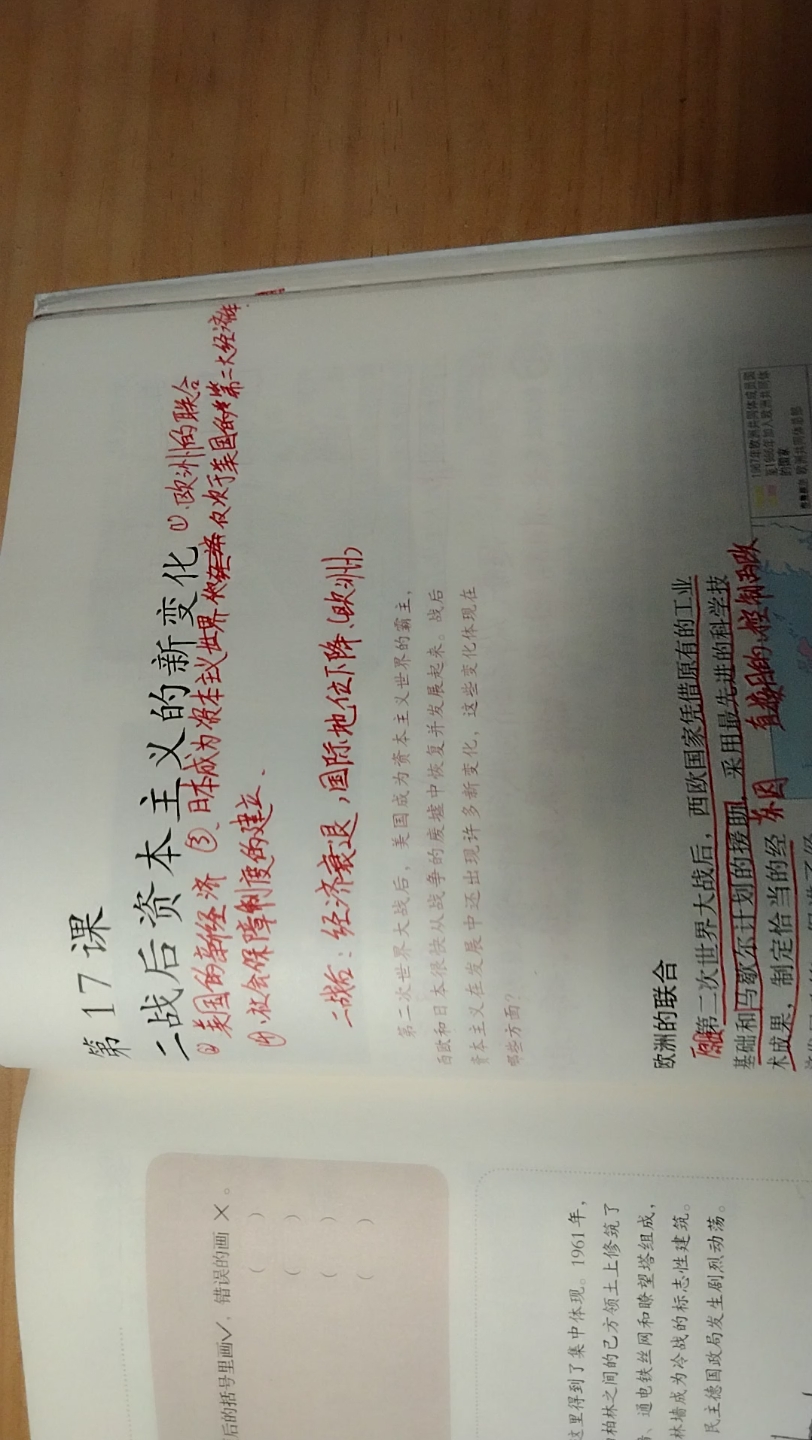 后的括号里画√，错误的画×。
( )
( )
( )
( )
这里得到了集中体现。1961年，
柏林之间的己方领土上修筑了
、通电铁丝网和瞭望塔组成，
林墙成为冷战的标志性建筑。
民主德国政局发生剧烈动荡。
第17课
二战后资本主义的新变化 ①.欧洲的联合
② 美国的新经济 ③、日本成为资本主义世界 仅次于美国的第二大经济体
④、社会保障制度的建立、
二战后：经济衰退，国际地位下降、(欧洲)
第二次世界大战后，美国成为资本主义世界的霸主，
西欧和日本很快从战争的废墟中恢复并发展起来。战后
资本主义在发展中还出现许多新变化，这些变化体现在
哪些方面？
欧洲的联合
第二次世界大战后，西欧国家凭借原有的工业
基础和马歇尔计划的援助，采用最先进的科学技
术成果，制定恰当的经
1967年欧洲共同体成员国
至1986年加入欧洲共同体
的国家
欧洲共同体总部